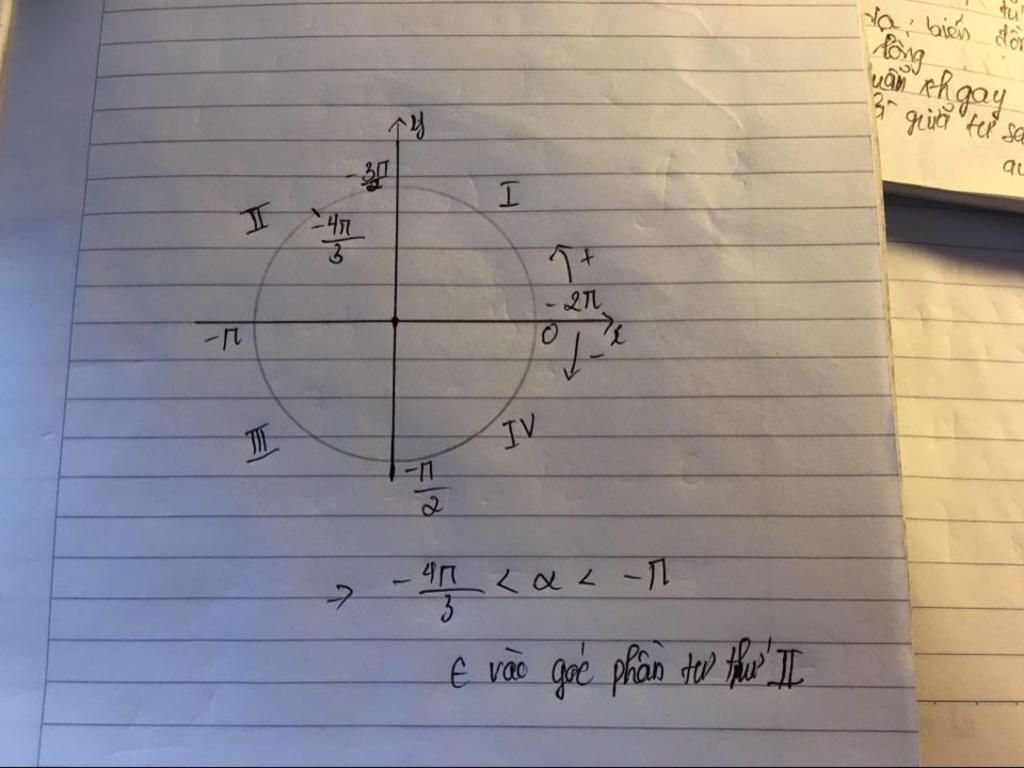 tư
biến đổi
đồng
gay
3 giữa tư
y
-3π/2
I
II
-4π/3
+
-2π
-π
0
x
-
III
IV
-π/2
→ -4π/3 < α < -π
∈ vào góc phần tư thứ II